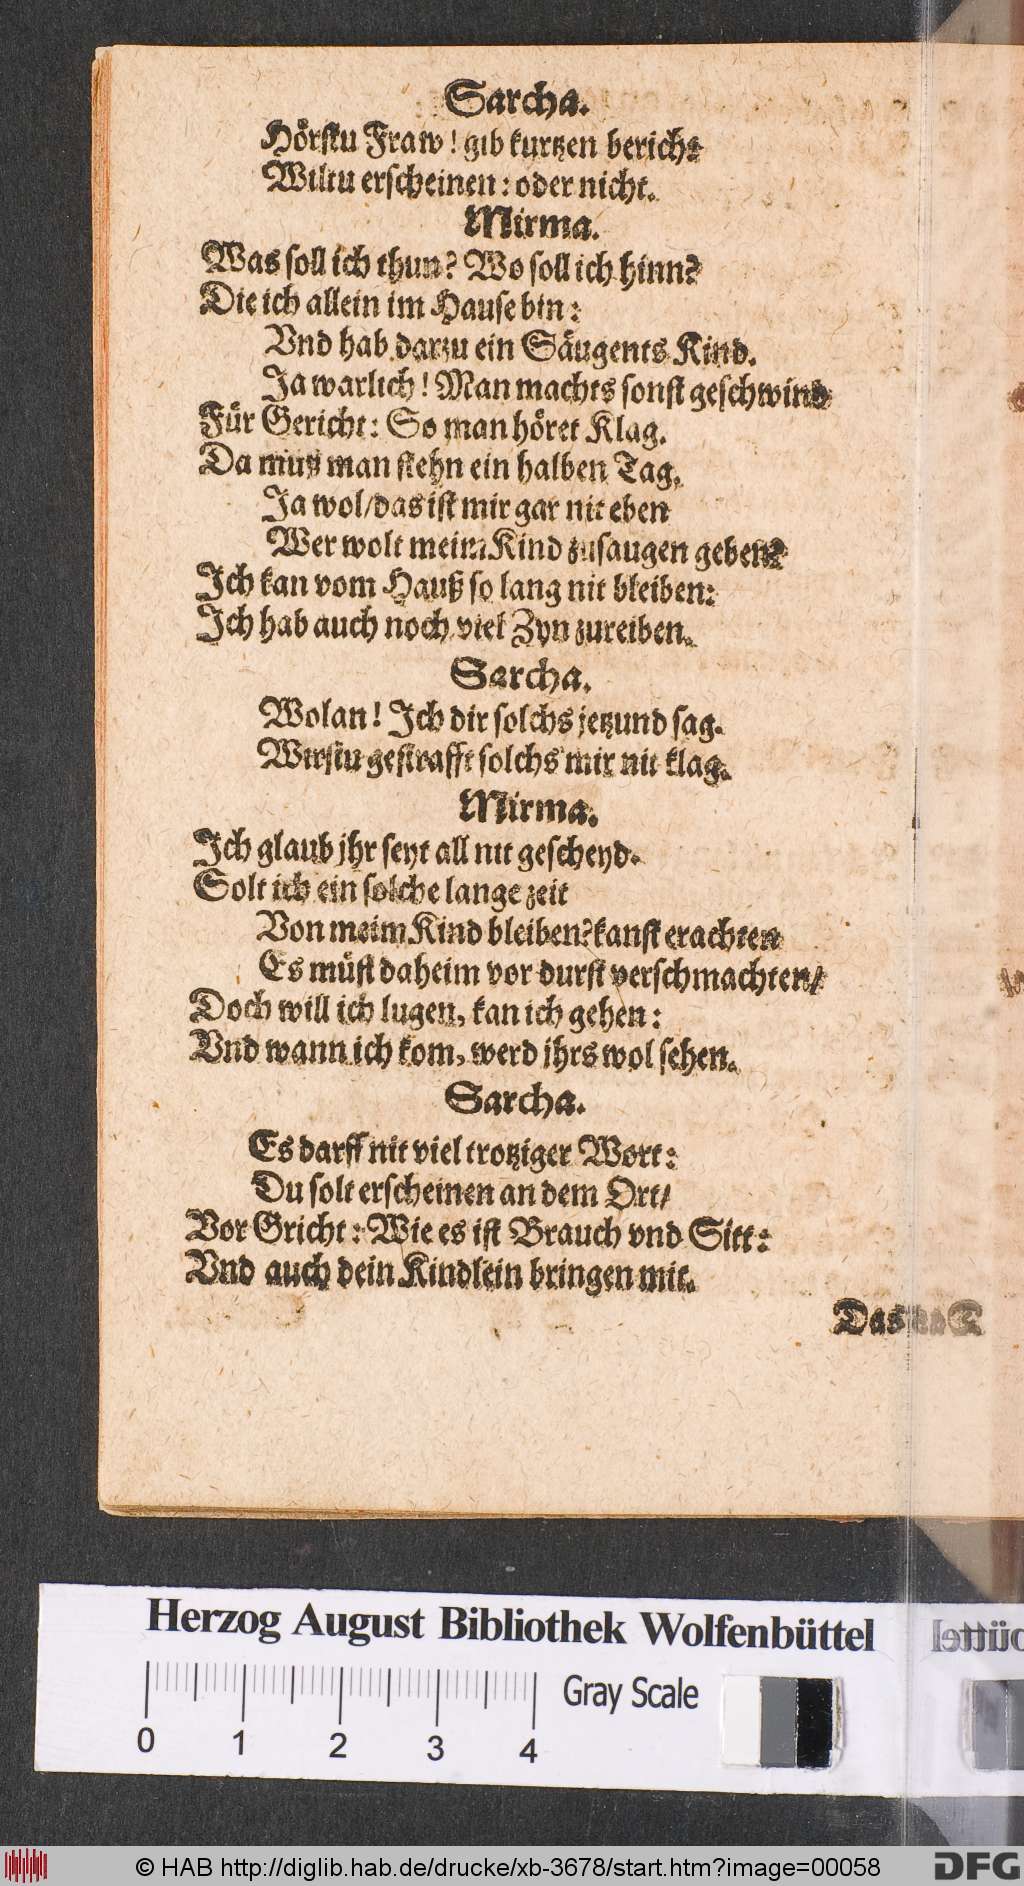 Sarcha.
Hörstu Fraw! gib kurtzen bericht
Wiltu erscheinen: oder nicht.
Mirma.
Was soll ich thun? Wo soll ich hinn?
Die ich allein im Hause bin:
Vnd hab darzu ein Säugents Kind.
Ja warlich! Man machts sonst geschwind
Für Gericht: So man höret Klag.
Da muß man stehn ein halben Tag.
Ja wol/das ist mir gar nit eben
Wer wolt meim Kind zusaugen geben?
Ich kan vom Hauß so lang nit bleiben:
Ich hab auch noch viel Zyn zureiben.
Sarcha.
Wolan! Ich dir solchs jetzund sag.
Wirstu gestrafft solchs mir nit klag.
Mirma.
Ich glaub jhr seyt all nit gescheyd.
Solt ich ein solche lange zeit
Von meim Kind bleiben? kanst erachten
Es müst daheim vor durst verschmachten/
Doch will ich lugen, kan ich gehen:
Vnd wann ich kom, werd ihrs wol sehen.
Sarcha.
Es darff nit viel trotziger Wort:
Du solt erscheinen an dem Ort/
Vor Gricht: Wie es ist Brauch vnd Sitt:
Vnd auch dein Kindlein bringen mit.
Das
Herzog August Bibliothek Wolfenbüttel
Gray Scale
0 1 2 3 4
© HAB http://diglib.hab.de/drucke/xb-3678/start.htm?image=00058
DFG